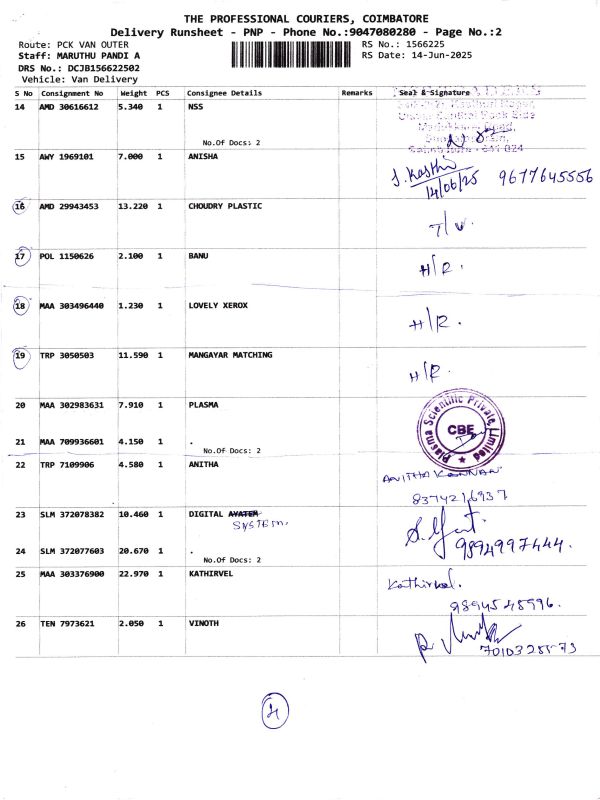 THE PROFESSIONAL COURIERS, COIMBATORE
Delivery Runsheet - PNP - Phone No.:9047080280 - Page No.:2
Route: PCK VAN OUTER
RS No.: 1566225
Staff: MARUTHU PANDI A
RS Date: 14-Jun-2025
DRS No.: DCJB156622502
Vehicle: Van Delivery
S No Consignment No Weight PCS Consignee Details Remarks Seal & Signature
14 AMD 30616612 5.340 1 NSS
No.Of Docs: 2
15 AWY 1969101 7.000 1 ANISHA
14/06/25 9677645556
16 AMD 29943453 13.220 1 CHOUDRY PLASTIC
17 POL 1150626 2.100 1 BANU H/R.
18 MAA 303496440 1.230 1 LOVELY XEROX H/R.
19 TRP 3050503 11.590 1 MANGAYAR MATCHING H/R.
20 MAA 302983631 7.910 1 PLASMA
Plasma Scientific Private Limited
CBE
21 MAA 709936601 4.150 1 .
No.Of Docs: 2
22 TRP 7109906 4.580 1 ANITHA
ANITHA KANNAN
8374216937
23 SLM 372078382 10.460 1 DIGITAL AYATEM
SYSTEM.
24 SLM 372077603 20.670 1 .
9894997444.
No.Of Docs: 2
25 MAA 303376900 22.970 1 KATHIRVEL
Kathirvel.
9894548996.
26 TEN 7973621 2.050 1 VINOTH